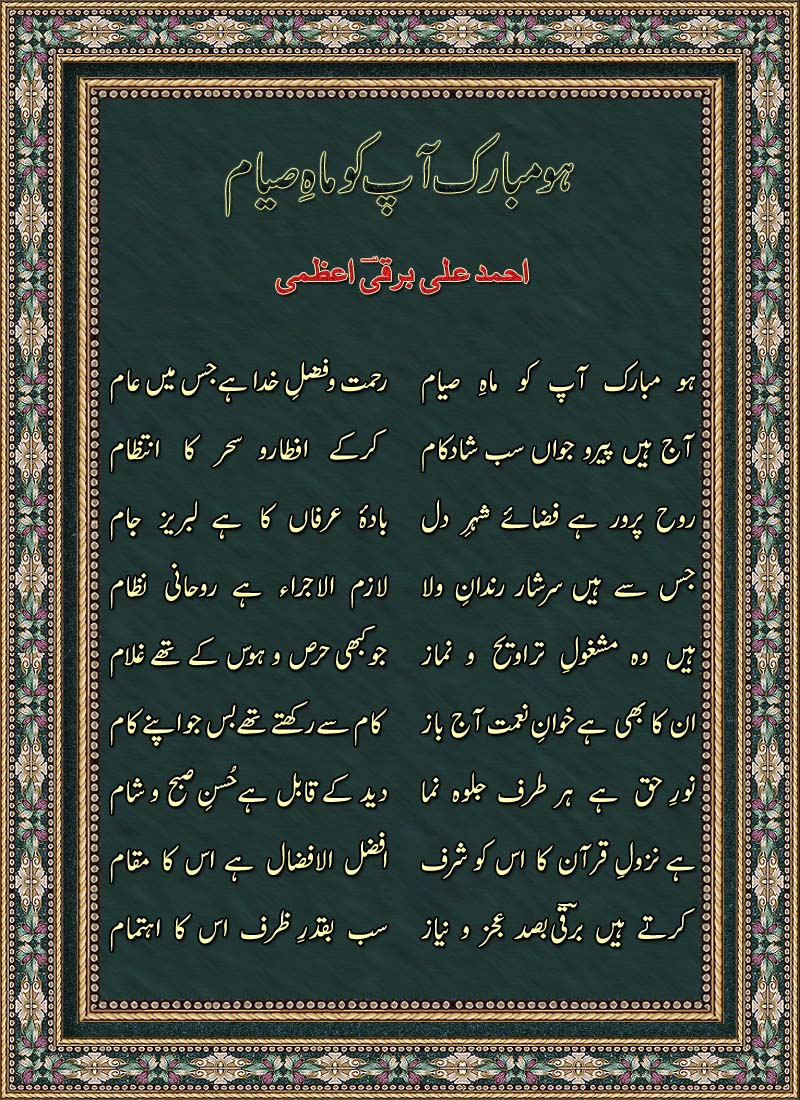 ہو مبارک آپ کو ماہِ صیام
احمد علی برقیؔ اعظمی
ہو مبارک آپ کو ماہِ صیام رحمت و فضلِ خدا ہے جس میں عام
آج ہیں پیرو جواں سب شادکام کرکے افطارو سحر کا انتظام
روح پرور ہے فضائے شہرِ دل بادۂ عرفاں کا ہے لبریز جام
جس سے ہیں سرشار رندانِ ولا لازم الاجراء ہے روحانی نظام
ہیں وہ مشغولِ تراویح و نماز جو کبھی حرص و ہوس کے تھے غلام
ان کا بھی ہے خوانِ نعمت آج باز کام سے رکھتے تھے بس جو اپنے کام
نورِ حق ہے ہر طرف جلوہ نما دید کے قابل ہے حُسنِ صبح و شام
ہے نزولِ قرآن کا اس کو شرف افضل الافضال ہے اس کا مقام
کرتے ہیں برقیؔ بصد عجز و نیاز سب بقدرِ ظرف اس کا اہتمام